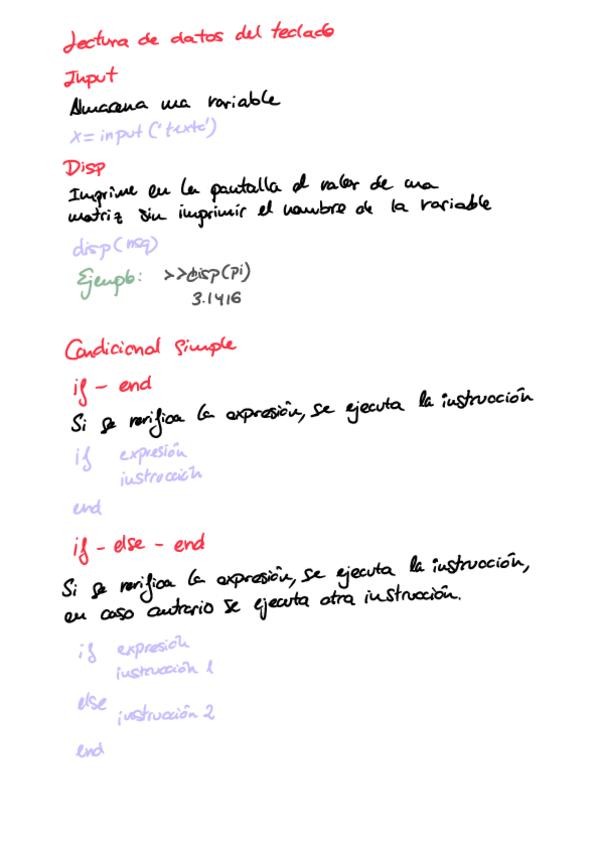 Lectura de datos del teclado
Input
Almacena una variable
x = input ('texto')
Disp
Imprime en la pantalla el valor de una
matriz sin imprimir el nombre de la variable
disp(msg)
Ejemplo: >>disp(pi)
3.1416
Condicional Simple
if - end
Si se verifica la expresión, se ejecuta la instrucción
if expresión
instrucción
end
if - else - end
Si se verifica la expresión, se ejecuta la instrucción,
en caso contrario se ejecuta otra instrucción.
if expresión
instrucción 1
else
instrucción 2
end